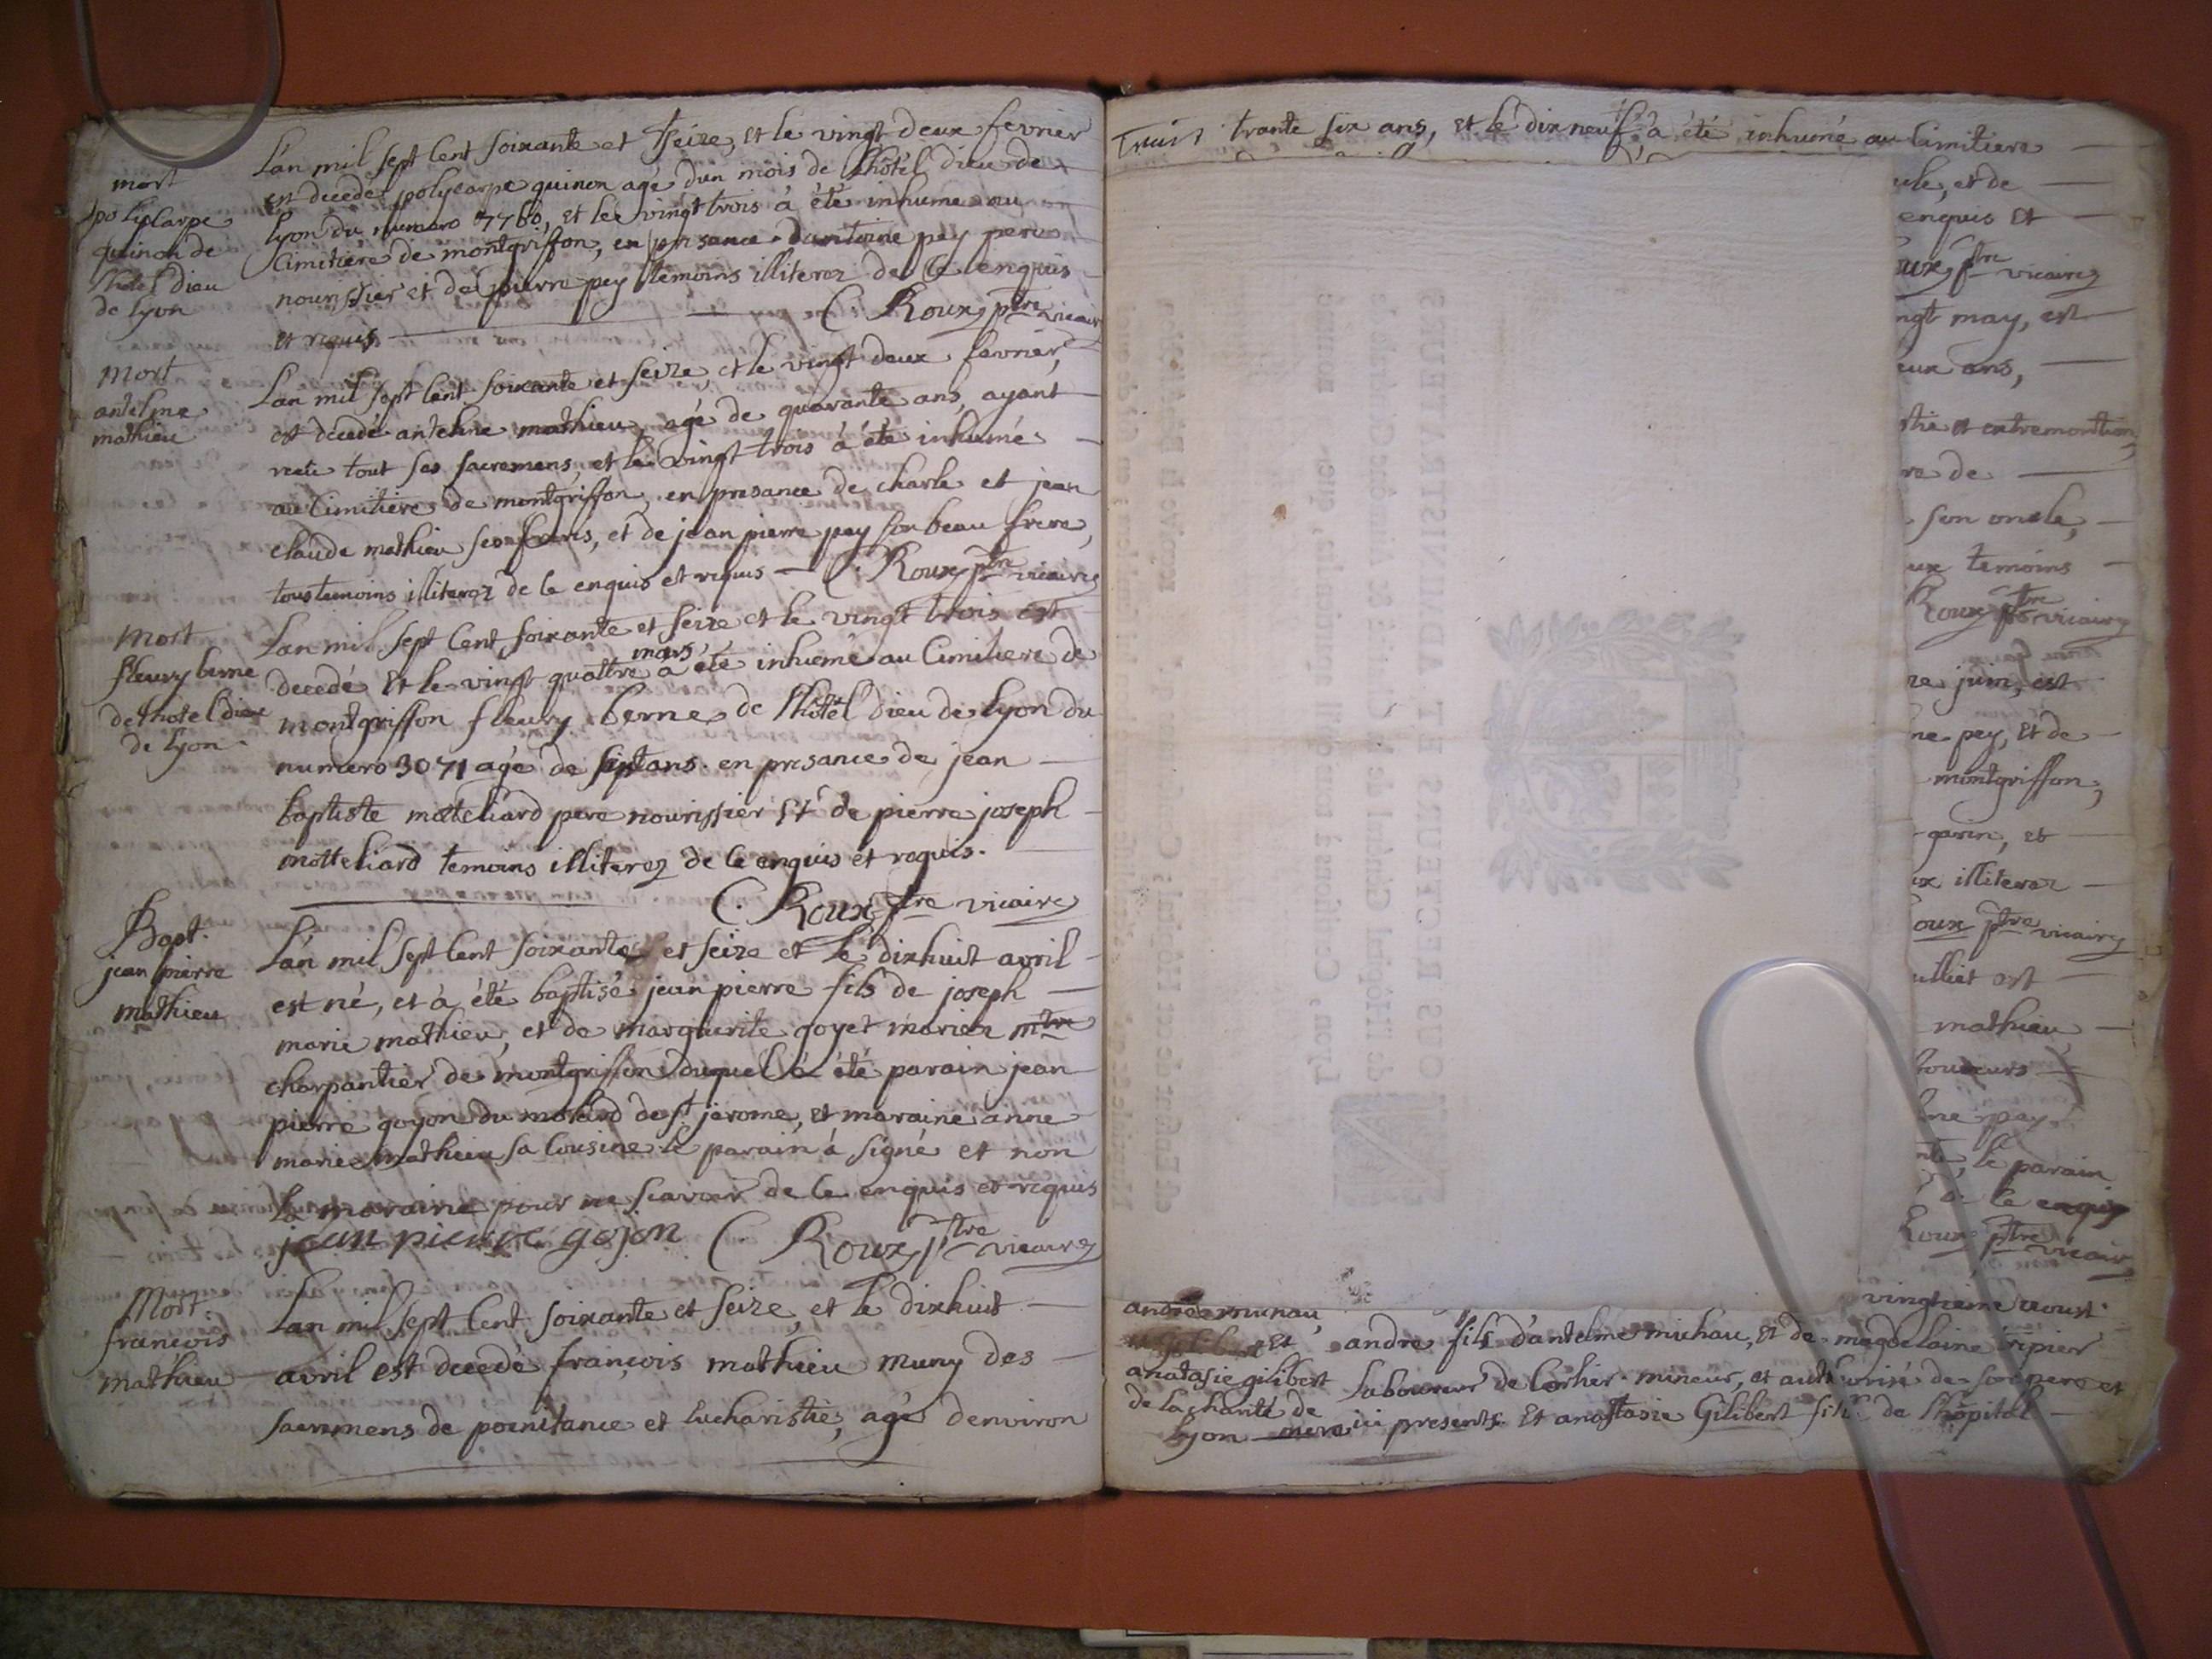 mort
polycarpe
quinon de
l'hotel dieu
de lyon
L'an mil sept cent soixante et seize, et le vingt deux fevrier
est decedé polycarpe quinon agé d'un mois de l'hôtel dieu de
lyon du numero 7760, et le vingt trois à été inhumé au
cimitiere de montgriffon, en presance d'antoine pey pere
nourissier et de pierre pey temoins illiterez de ce enquis
et requis C. Roux ptre vicaire
mort
antelme
mathieu
L'an mil sept cent soixante et seize, et le vingt deux fevrier,
est decedé antelme mathieu, agé de quarante ans, ayant
recu tout ses sacremens, et le vingt trois à été inhumé
au cimitiere de montgriffon, en presance de charle et jean
claude mathieu ses freres, et de jean pierre pey son beau frere,
tous temoins illiterez de ce enquis et requis C. Roux ptre vicaire
mort
fleury berne
de l'hotel dieu
de lyon
L'an mil sept cent soixante et seize et le vingt trois est
mars
decedé et le vingt quattre à été inhumé au cimitiere de
montgriffon fleury berne de l'hôtel dieu de lyon du
numero 3071 agé de sept ans. en presance de jean
baptiste matteliard pere nourissier et de pierre joseph
motteliard temoins illiterez de ce enquis et requis.
C. Roux ptre vicaire
Bapt.
jean pierre
mathieu
L'an mil sept cent soixante et seize et le dixhuit avril
est né, et à été baptisé jean pierre fils de joseph
marie mathieu, et de marguerite goyet mariez mtre
charpantier de montgriffon duquel à été parain jean
pierre goyon du molard de st jerome, et maraine anne
marie mathieu sa cousine le parain à signé et non
la maraine pour ne scavoir de ce enquis et requis
jean pierre gojon C. Roux ptre vicaire
Mort.
francois
mathieu
L'an mil sept cent soixante et seize, et le dixhuit
avril est decedé francois mathieu muny des
sacremens de poenitance et Eucharistie, agé d'environ
trante six ans, et le dix neuf à été inhumé au cimitiere
ule, et de
enquis et
oux ptre vicaire
ngt may, est
eux ans,
stie et extremontion,
re de
son oncle,
ux temoins
Roux ptre vicaire
re juin, est
ne pey, et de
montgriffon,
garin, et
ux illiterez
oux ptre vicaire
uillet est
mathieu
me pey
nte, le parain
le enquis
Roux ptre vicair
vingtieme aoust
et
anatasie gilibert
de la charité de
lyon
andre fils d'antelme michau, et de magdelaine tripier
laboureur de Corlier mineur, et authorisé de son pere et
mere ici presents. Et anastasie Gilibert fille de l'hôpital